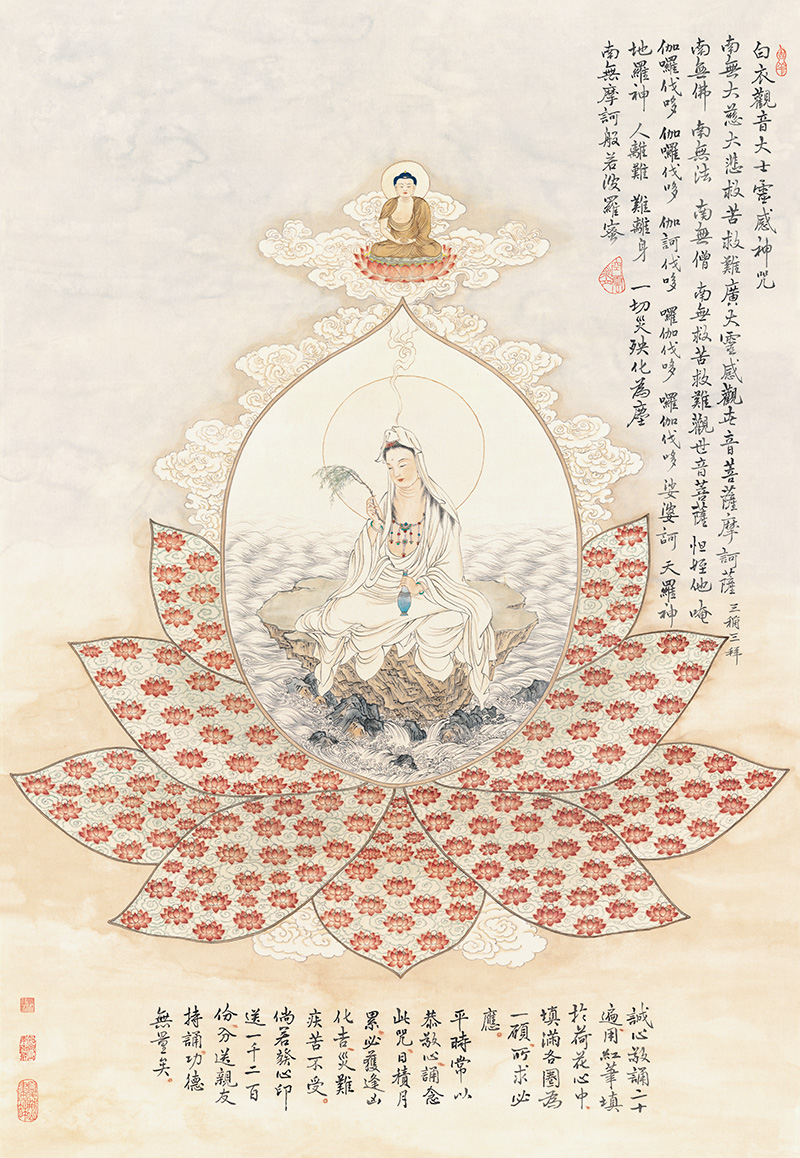 白衣觀音大士靈感神咒
南無大慈大悲救苦救難廣大靈感觀世音菩薩摩訶薩 三稱三拜
南無佛 南無法 南無僧 南無救苦救難觀世音菩薩 怛姪他 唵
伽囉伐哆 伽囉伐哆 伽訶伐哆 囉伽伐哆 囉伽伐哆 娑婆訶 天羅神
地羅神 人離難 難離身 一切災殃化為塵
南無摩訶般若波羅蜜
誠心敬誦二十
遍用紅筆填
於荷花心中。
填滿各圈為
一願所求必
應。
平時常以
恭敬心誦念
此咒日積月
累必獲逢凶
化吉災難
疾苦不受。
倘若發心印
送一千二百
份分送親友
持誦功德
無量矣。